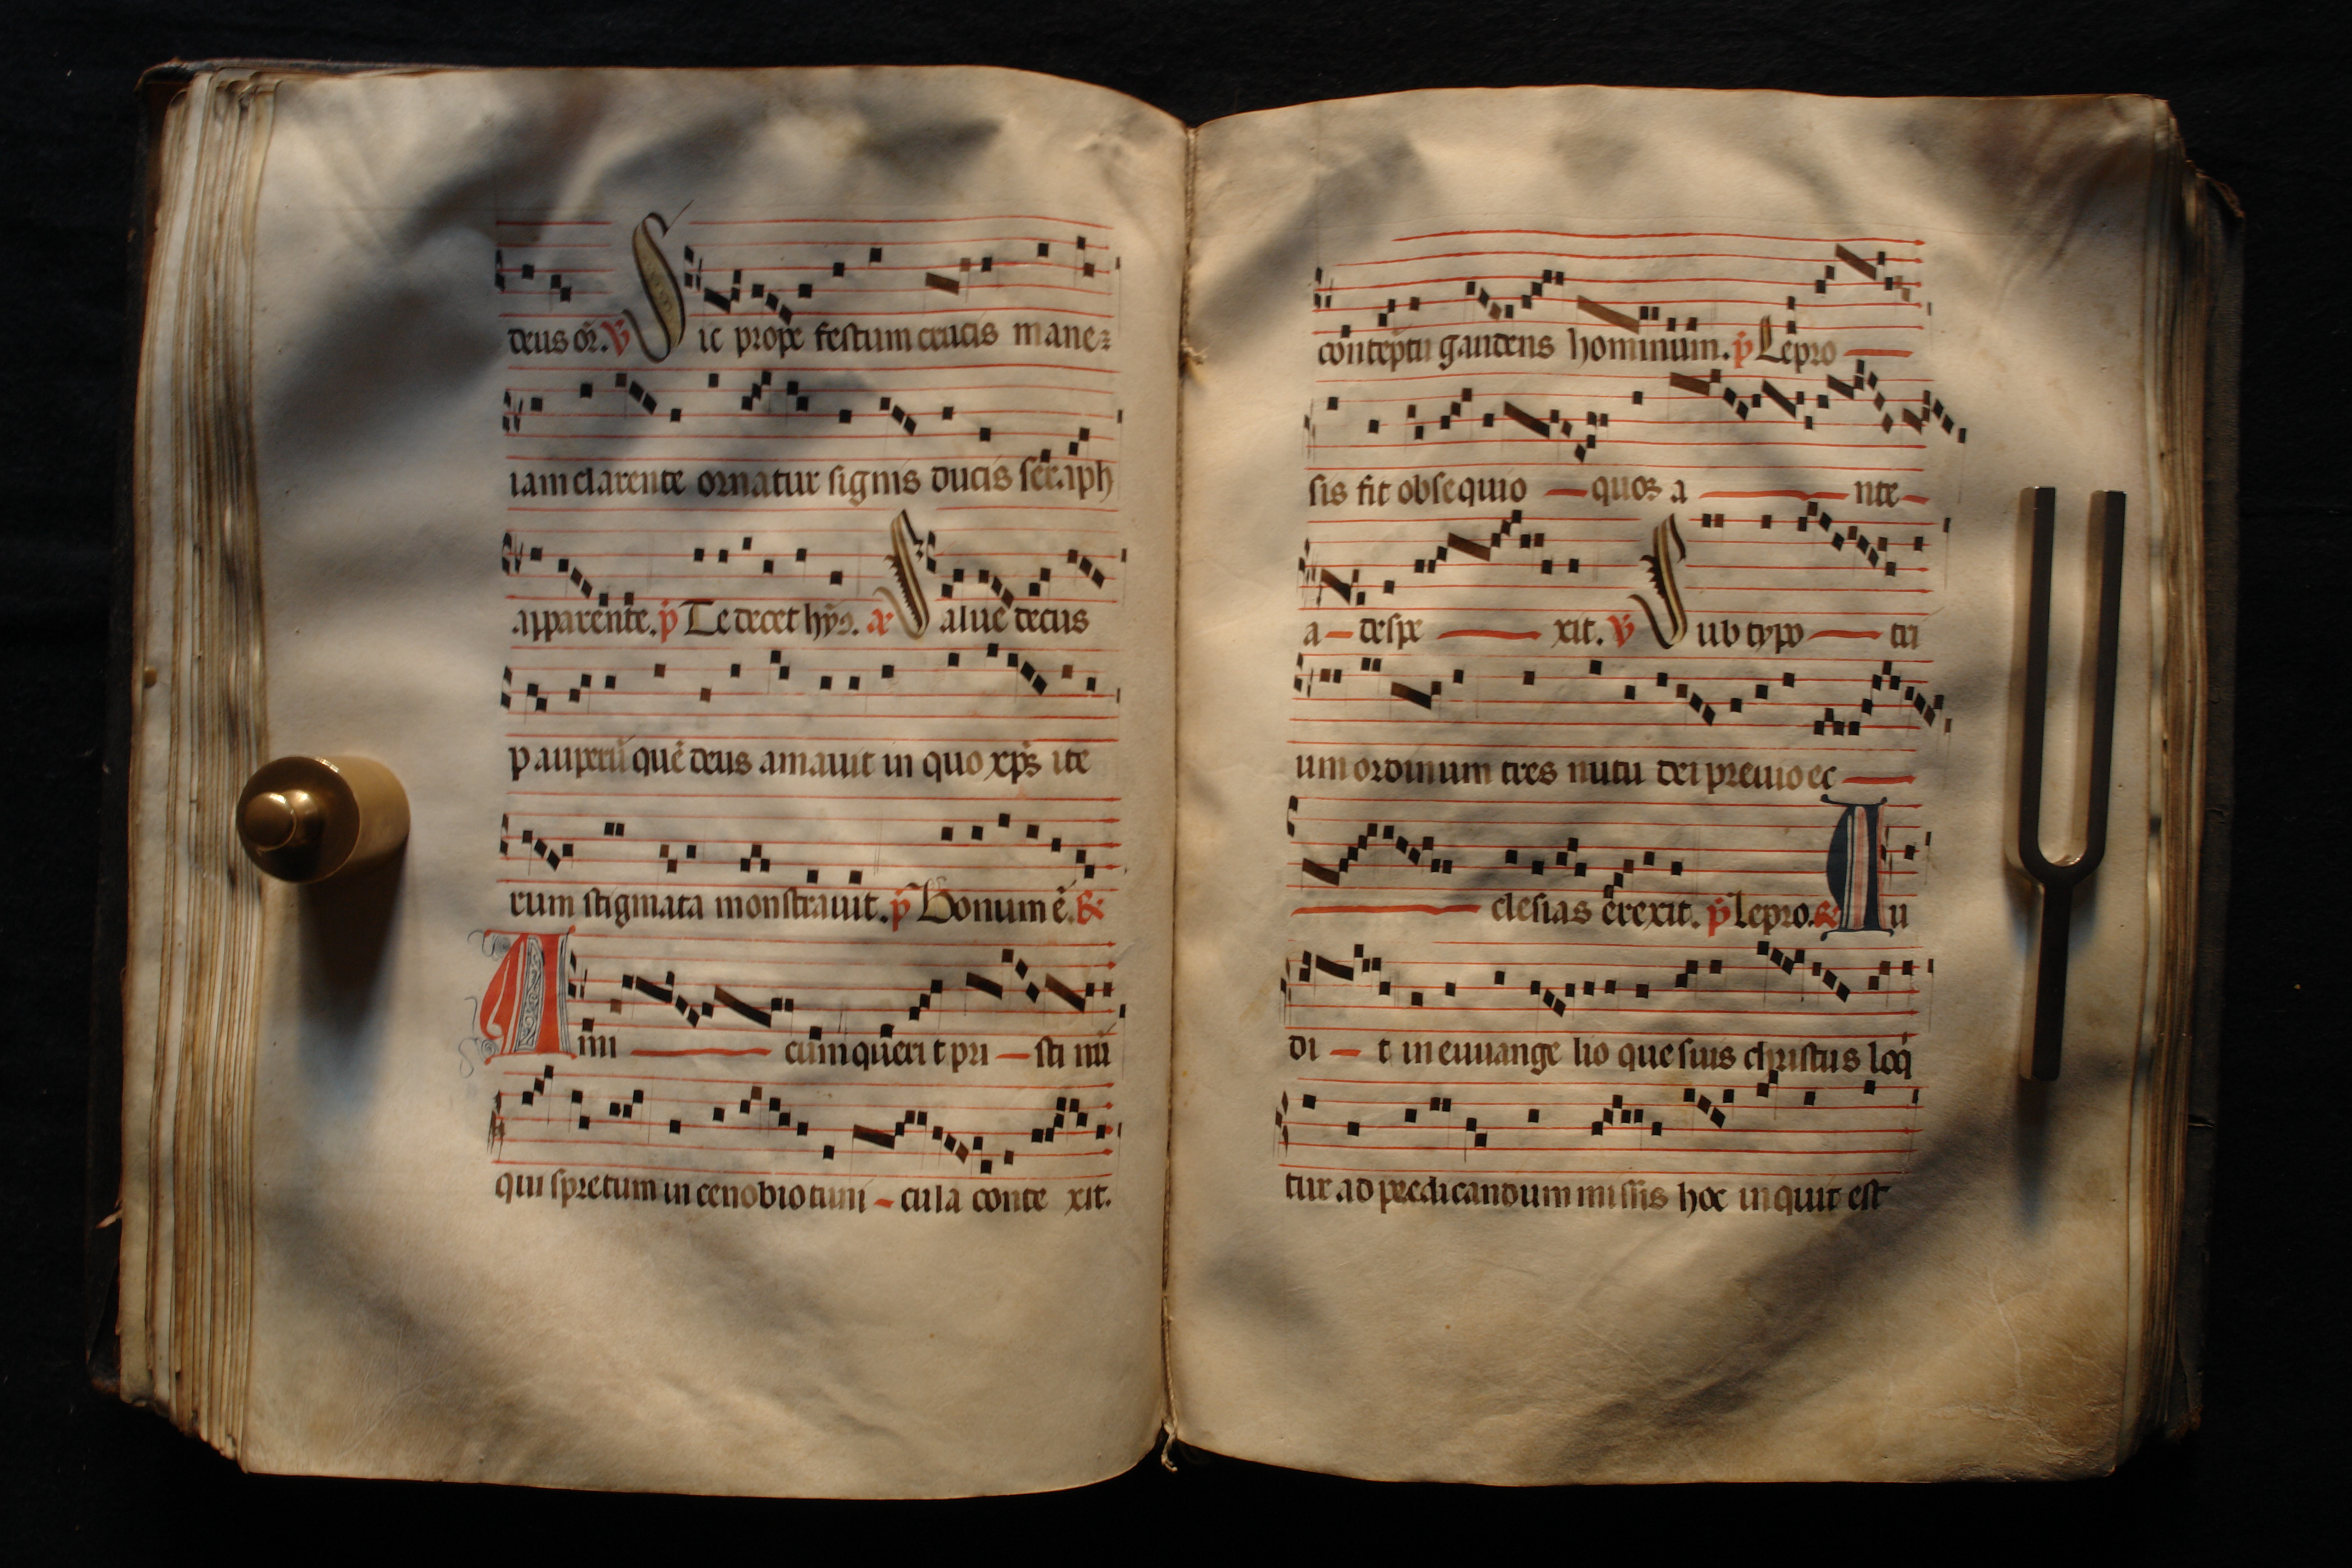 deus or̄. V Sic prope festum crucis mane
iam clarente ornatur signis ducis seraph
apparente. p̄ Te decet hȳ. a Salue decus
pauperū quē deus amauit in quo xp̄s ite
rum stigmata monstrauit. p̄ Bonum ē. R
Ami cum querit pristi nū
qui spretum in cenobio tuni cula conte xit.
contēptu gaudens hominum. p̄ Lepro
sis fit obsequio quos a nte
a despe xit. V Sub typo tri
um ordinum tres nutu dei preuio ec
clesias erexit. p̄ lepro. R Au
di t in euuange lio que suis christus loq̄
tur ad predicandum missis hoc inquit est